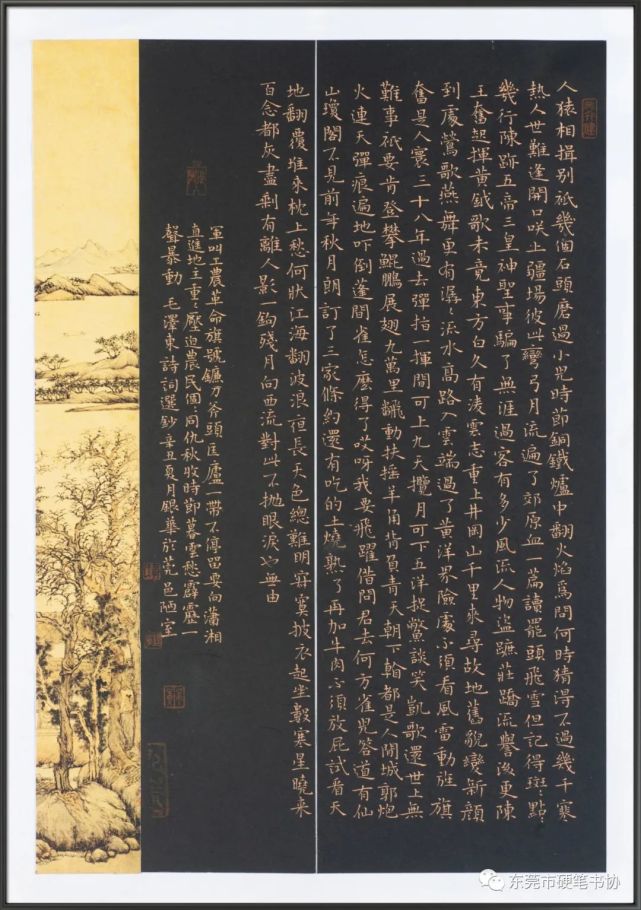 人猿相揖別祇幾個石頭磨過小兒時節銅鐵爐中翻火焰爲問何時猜得不過幾千寒
熱人世難逢開口咲上疆場彼此彎弓月流遍了郊原血一篇讀罷頭飛雪但記得斑々點
幾行陳跡五帝三皇神聖事騙了無涯過客有多少風流人物盜蹠莊蹻流譽後更陳
王奮起揮黃鉞歌未竟東方白久有淩雲志重上井岡山千里來尋故地舊貌變新顏
到處鶯歌燕舞更有潺々流水高路入雲端過了黃洋界險處不須看風雷動旌旗
奮是人寰三十八年過去彈指一揮間可上九天攬月可下五洋捉鱉談笑凱歌還世上無
難事祇要肯登攀鯤鵬展翅九萬里翻動扶搖羊角背負青天朝下都是人間城郭炮
火連天彈痕遍地吓倒蓬間雀怎麼得了哎呀我要飛躍借問君去何方雀兒答道有仙
山瓊閣不見前年秋月朗訂了三家條約還有吃的土燒熟了再加牛肉不須放屁試看天
地翻覆堆來枕上愁何狀江海翻波浪夜長天色總難明寂寞披衣起坐數寒星曉來
百念都灰盡剩有離人影一鉤殘月向西流對此不拋眼淚也無由
軍叫工農革命旗號鐮刀斧頭匡廬一帶不停留要向瀟湘
直進地主重々壓迫農民個々同仇秋收時節暮雲愁霹靂一
聲暴動 毛澤東詩詞選鈔辛丑夏月銀華於莞邑陋室
东莞市硬笔书协